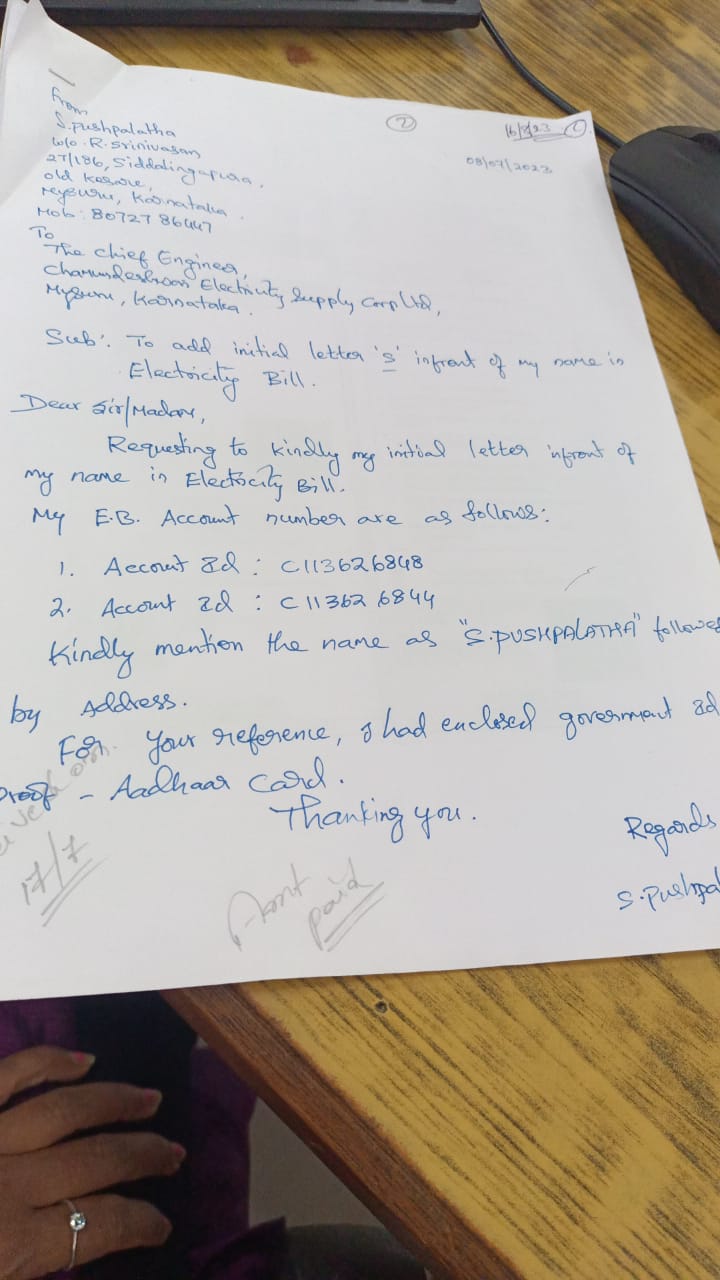 From
S.pushpalatha
w/o. R. Srinivasan
27/186, Siddalingapura,
old Kesare,
Mysuru, Karnataka.
Mob: 80727 86447
②
16/8/23
08/07/2023
To
The Chief Engineer,
Chamundeshwari Electricity Supply Corp Ltd,
Mysuru, Karnataka.
Sub: To add initial letter 's' infront of my name in
Electricity Bill.
Dear Sir/Madam,
Requesting to kindly my initial letter infront of
my name in Electricity Bill.
My E.B. Account number are as follows:
1. Account Id : C113626848
2. Account Id : C113626844
Kindly mention the name as "S.PUSHPALATHA" followe
by Address.
For your reference, I had enclosed goverment Id
proof - Aadhaar Card.
Thanking you.
17/7
paid
Regards
S.Pushpal